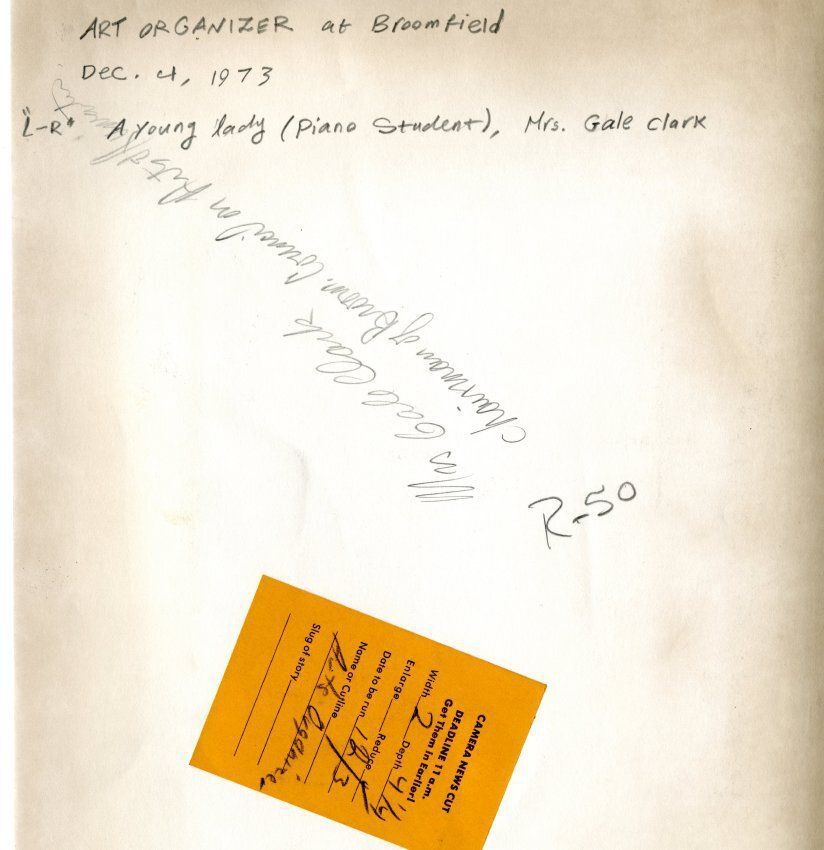 ART ORGANIZER at Broomfield
Dec. 4, 1973
"L-R" A young lady (Piano Student), Mrs. Gale Clark
Mrs Gale Clark
Chairman of Broom. Council on Arts &
R-50
CAMERA NEWS CUT
DEADLINE 11 a.m.
Get Them in Earlier!
Width 2 Depth 4
Enlarge Reduce
Date to be run 12/
Name or Cutline
Arts Organizer
Slug of story